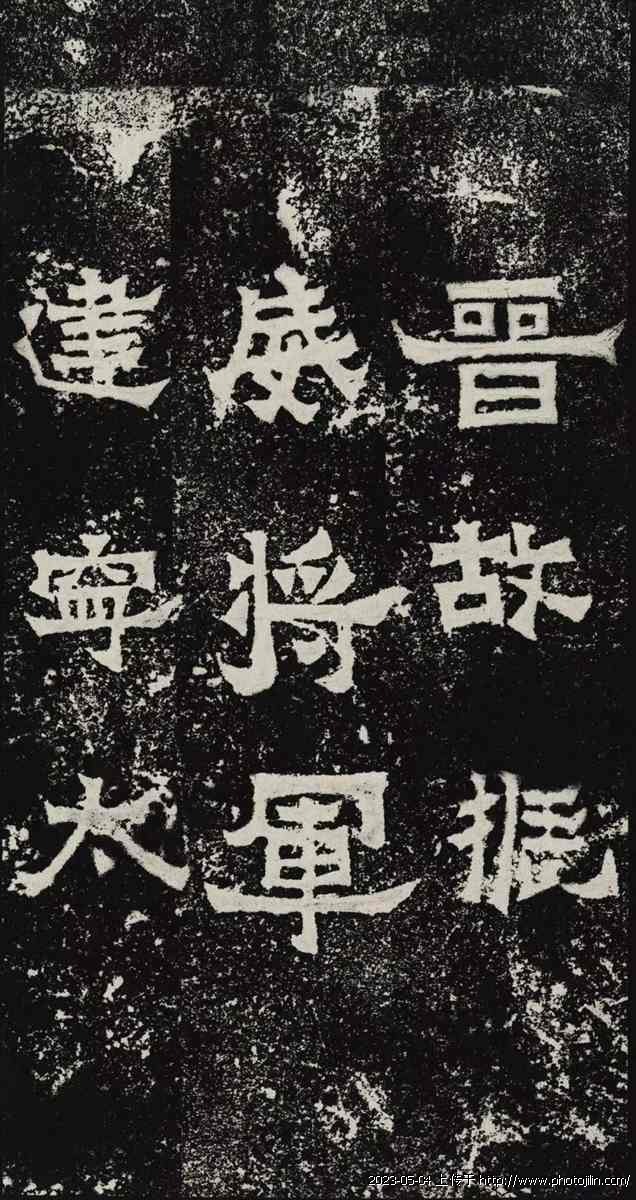 晉故振
威將軍
建寧太
2023-05-04 上传于 http://www.photojilin.com/